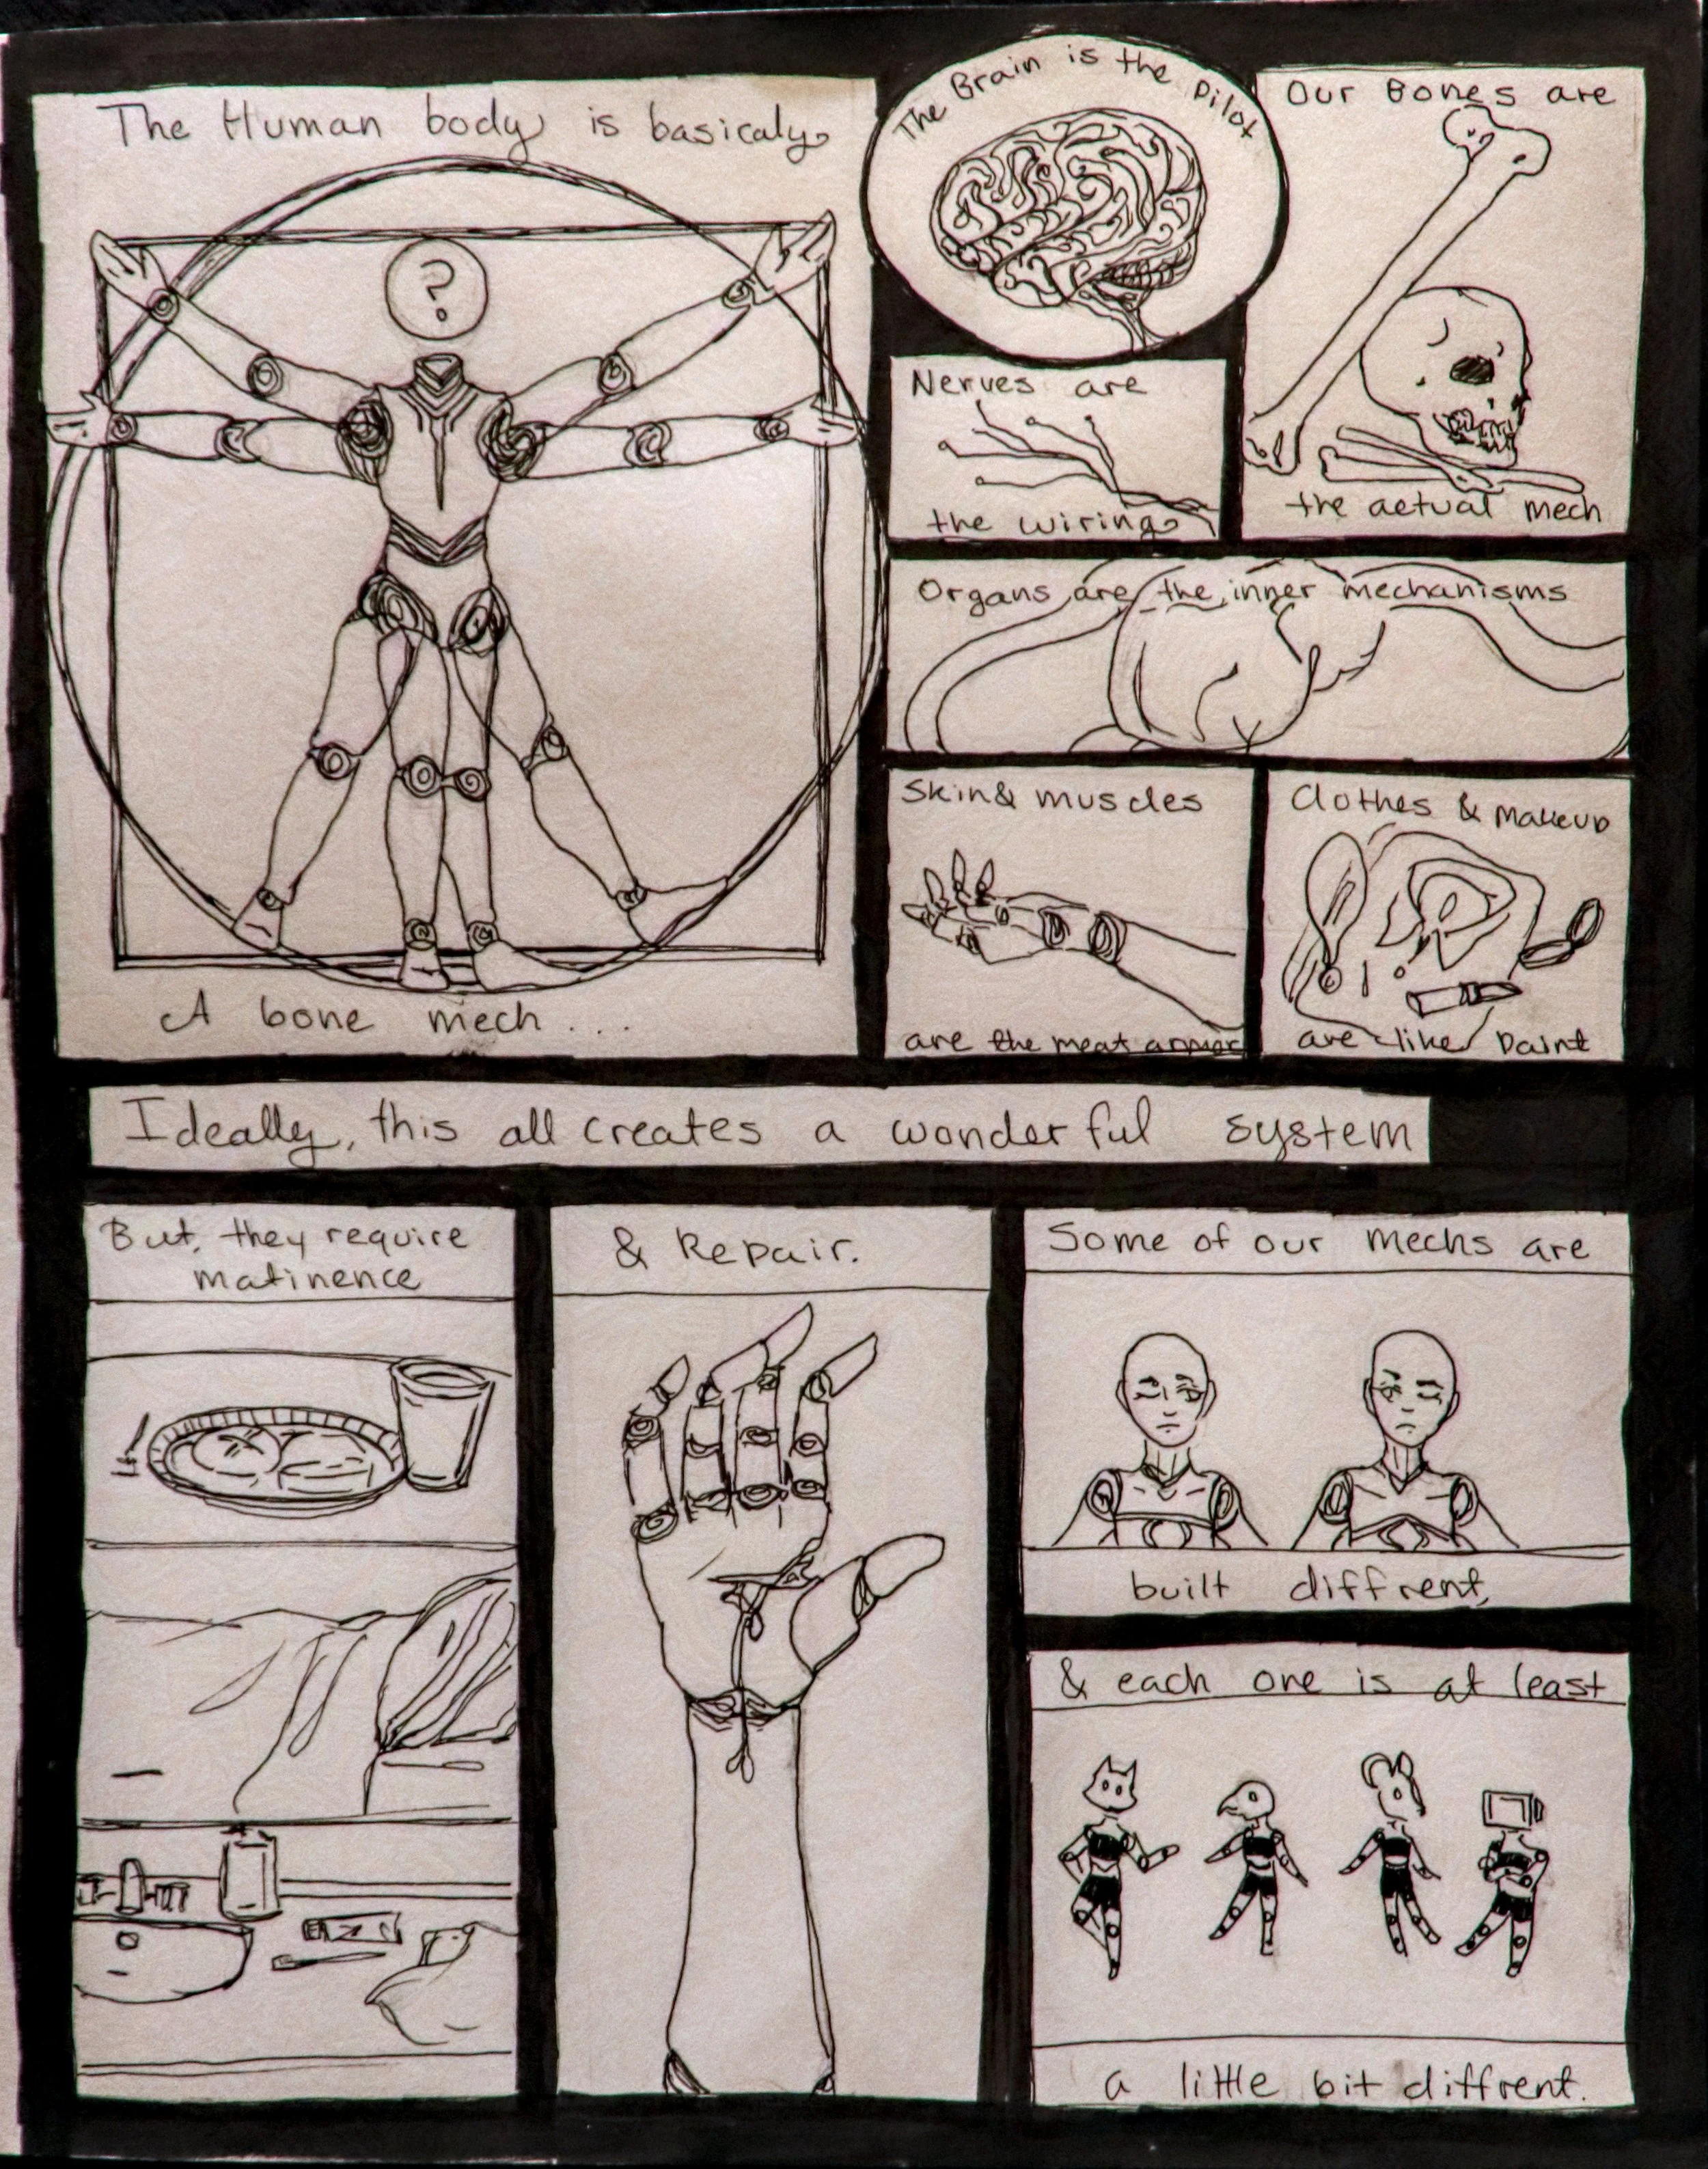 The Human body is basicaly
?
A bone mech...
The Brain is the pilot
Our Bones are
the actual mech
Nerves are
the wiring
Organs are the inner mechanisms
Skin & muscles
are the meat armor
Clothes & makeup
are like paint
Ideally, this all creates a wonderful system
But, they require
matinence
& Repair.
Some of our mechs are
built diffrent,
& each one is at least
a little bit diffrent.